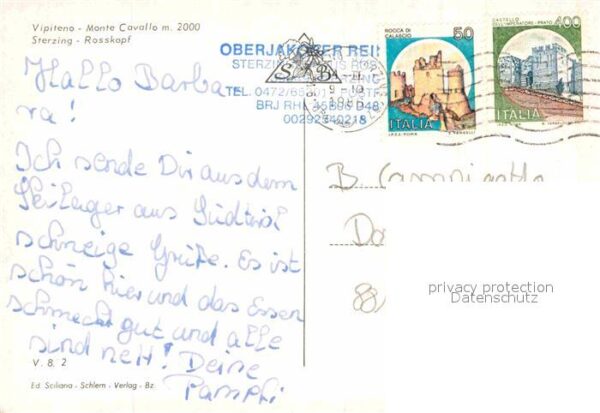 Vipiteno - Monte Cavallo m. 2000
Sterzing - Rosskopf
OBERJAKOBER REI
STERZING
TEL. 0472/65
BRJ RH
00292340218
ROCCA DI CALASCIO
50
ITALIA
CASTELLO DELL'IMPERATORE - PRATO
400
ITALIA
Hallo Barba
ra!
Ich sende Dir aus dem
Skilager aus Südtirol
schneige Grüße. Es ist
schön hier und das Essen
schmeckt gut und alle
sind nett! Deine
B.
privacy protection
Datenschutz
V. 8. 2
Ed. Sciliana - Schlern - Verlag - Bz.